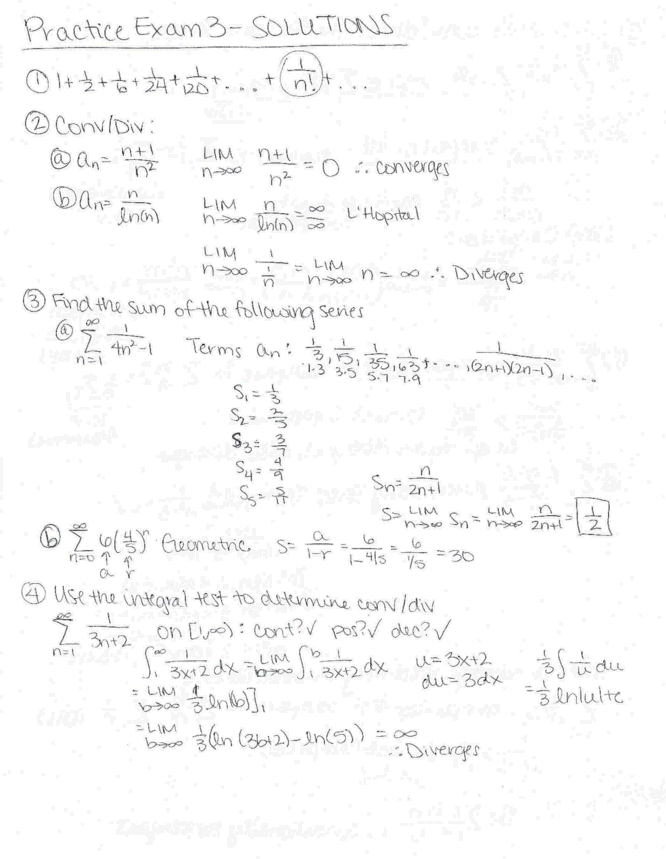 Practice Exam 3 - SOLUTIONS
① 1 + 1/2 + 1/6 + 1/24 + 1/120 + ... + 1/n! + ...
② Conv/Div:
ⓐ aₙ = (n+1)/n²   LIM n→∞ (n+1)/n² = 0 ∴ converges
ⓑ aₙ = n/ln(n)   LIM n→∞ n/ln(n) = ∞/∞ L'Hopital
LIM n→∞ 1/(1/n) = LIM n→∞ n = ∞ ∴ Diverges
③ Find the sum of the following series
ⓐ ∞ Σ n=1 1/(4n²-1)   Terms aₙ: 1/3, 1/15, 1/35, 1/63 + ..., 1/((2n+1)(2n-1)), ...
1·3 3·5 5·7 7·9
S₁ = 1/3
S₂ = 2/5
S₃ = 3/7
S₄ = 4/9   Sₙ = n/(2n+1)
S₅ = 5/11   S = LIM n→∞ Sₙ = LIM n→∞ n/(2n+1) = 1/2
ⓑ ∞ Σ n=0 6(4/5)ⁿ Geometric S = a/(1-r) = 6/(1-4/5) = 6/(1/5) = 30
↑ ↑
a r
④ Use the integral test to determine conv/div
∞ Σ n=1 1/(3n+2)   on [1,∞): cont?✓ pos?✓ dec?✓
∫₁^∞ 1/(3x+2) dx = LIM b→∞ ∫₁^b 1/(3x+2) dx   u = 3x+2   1/3 ∫ 1/u du
du = 3dx   = 1/3 ln|u|+c
= LIM b→∞ 1/3 ln(b)]₁
= LIM b→∞ 1/3 (ln(3b+2) - ln(5)) = ∞
∴ Diverges